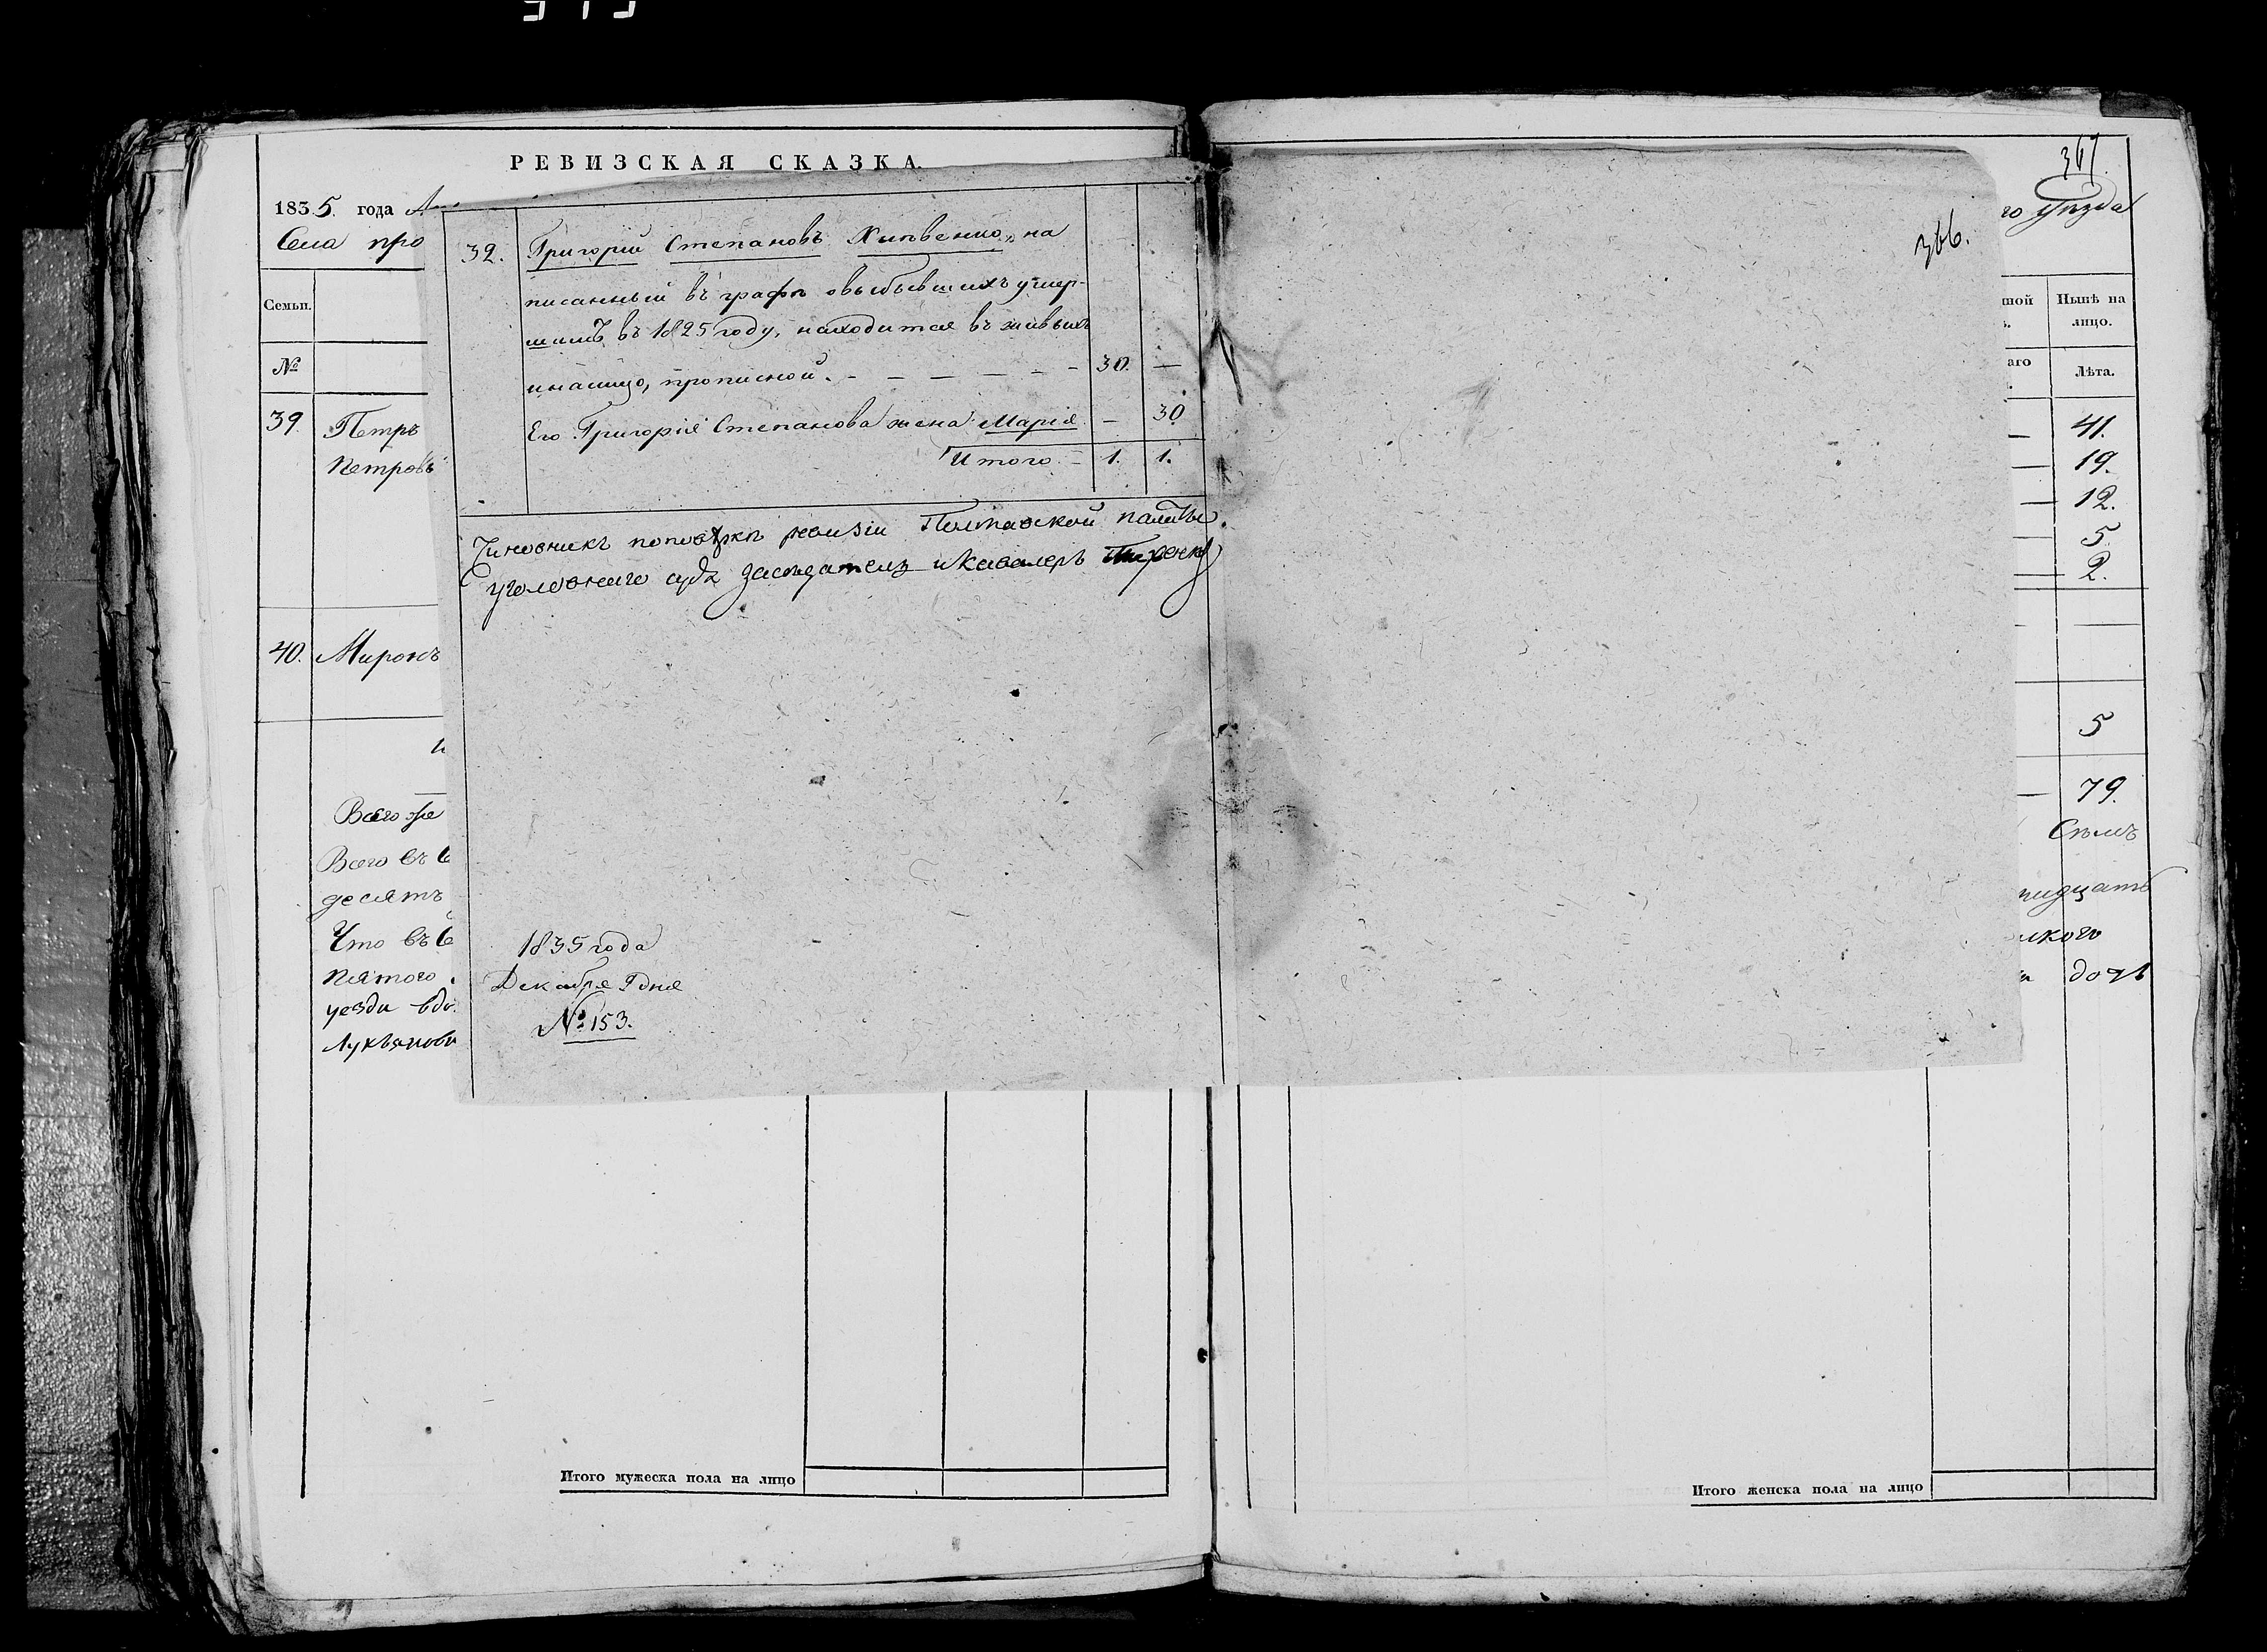 РЕВИЗСКАЯ СКАЗКА.
1835. года
Села про
Семьи.
№
39. Петръ
Петровъ
40. Миронъ
Всего же
Всего въ
десять
Что въ
пятого
уезди вдо.
32. Григорій Степановъ на
писанный въ графѣ овыбывшихъ умер-
шимъ въ 1825 году, находится въ живыхъ
иналицо, прописной. - - - - - - 30. —
Его Григорія Степанова жена Марія - 30
Итого - 1. 1.
Чиновникъ поповѣркѣ ревизіи Полтавской палаты
уголовнаго суда засѣдатель икавалеръ
1835 года
Декабря 9 дня
№ 153.
Итого мужеска пола на лицо
367.
366.
го уѣзда
ной Нынѣ на
лицо.
аго Лѣта.
— 41.
— 19.
— 12.
— 5
— 2.
5
— 79.
Семь
надцать
дочь
Итого женска пола на лицо